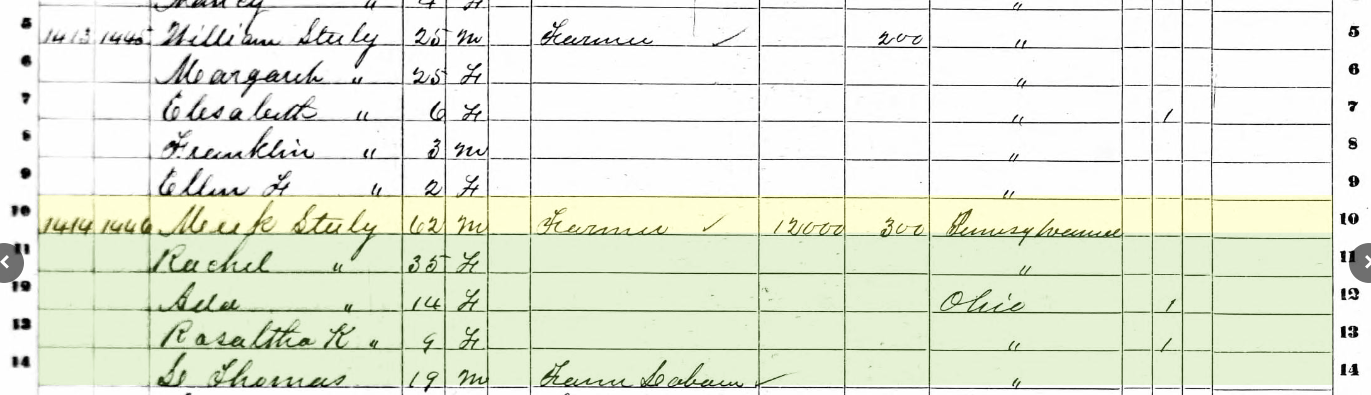 Nancy " 4 F "
5 1413 1445 William Steely 25 m Farmer ✓ 200 " 5
6 Margareth " 25 F " 6
7 Elesabeth " 6 F " 1 7
8 Franklin " 3 m " 8
9 Ellen F " 2 F " 9
10 1414 1446 Meek Steely 62 m Farmer ✓ 12000 300 Pennsylvania 10
11 Rachel " 35 F " 11
12 Ada " 14 F Ohio 1 12
13 Rosaltha K " 9 F " 1 13
14 Thomas 19 m Farm Laborer ✓ " 14